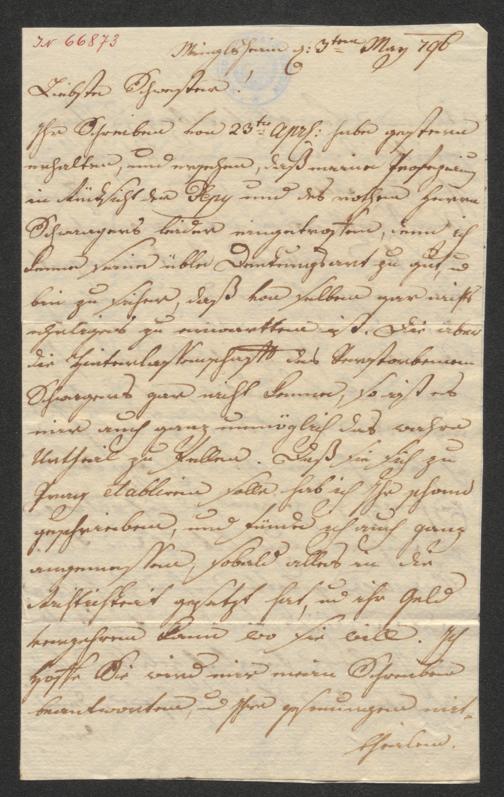 I.N. 66873
Mingolsheim d: 3ten May 796
Liebste Schwester!
Ihr Schreiben von 23ten Aprl: habe gestern
erhalten, und ersehen, daß meine Profezeiung
in Rücksicht der Pepy und des rothen Herrn
Schwagers leider eingetroffen, denn ich
kenne seine üble Denkungsart zu gut, u
bin zu sicher, daß von selben gar nichts
zu erwartten ist. Da aber
die Hinterlassenschafft des Verstorbenen
Schwagers gar nicht kenne, so ist es
mir auch ganz unmöglich das wahre
Urtheil zu fällen. Daß sie sich zu
Prag etablieren solle hab ich Ihr schon
geschrieben, und finde es auch ganz
angemessen, sobald alles in die
Richtichkeit gesetzt hat, ud ihr Geld
verzehren kann wo sie will. Ich
hoffe Sie wird mir mein Schreiben
beantworten, u Ihre gesinnungen mit-
theilen.